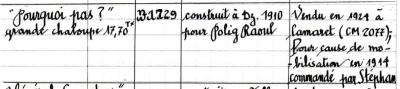 "Pourquoi pas?"
grande chaloupe 17,70 Tx
construit à Dz. 1910
pour Poliq Raoul
Vendu en 1921 à
Camaret (CM 2077);
Pour cause de mo-
bilisation en 1914
commandé par Stéphan